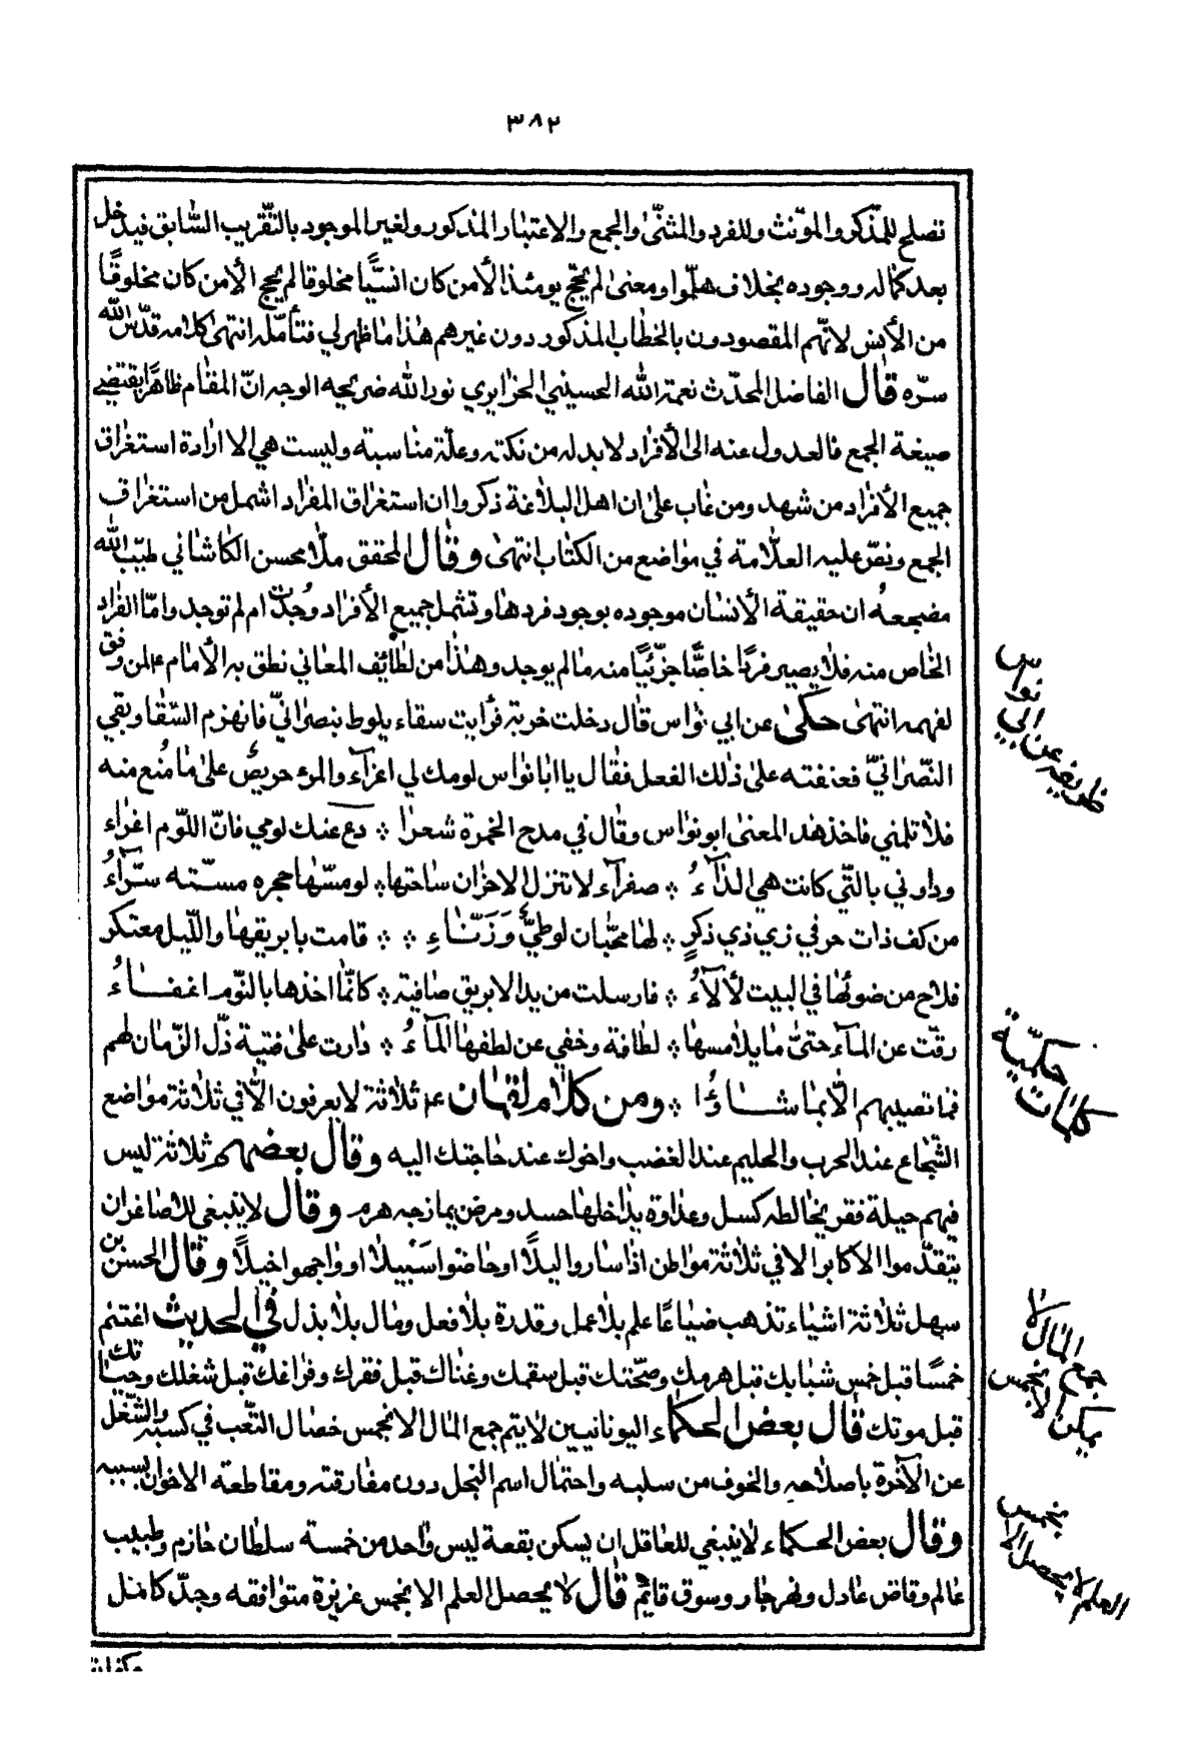 ٣٨٢
تصلح للمذّكر والموّنث وللفرد والمثنّى والجمع والاعتبار المذكور ولغير الموجود بالتّقريب السّابق فيدخل
بعد كماله ووجوده بخلاف هلمّوا ومعنى لم يحجّ يومئذ الّا من كان انسيًّا مخلوقا لم يحج الّا من كان مخلوقًا
من الأنس لانّهم المقصودون بالخطاب المذكور دون غيرهم هذا ما ظهر لي فتأمّله انتهى كلامه قدّس اللّه
سرّه قال الفاضل المحدّث نعمة اللّه الحسيني الجزايري نور اللّه ضريحه الوجه انّ المقام ظاهرًا يقتضي
صيغة الجمع فالعدول عنه الى الأفراد لا بد له من نكتة وعلّة مناسبة وليست هي الا ارادة استغراق
جميع الأفراد من شهد ومن غاب على ان اهل البلاغة ذكروا ان استغراق المفراد اشمل من استغراق
الجمع ونصّ عليه العلّامة في مواضع من الكتاب انتهى وقال المحقق ملّا محسن الكاشاني طيّب اللّه
مضجعه ان حقيقة الأنسان موجوده بوجود فردها وتشمل جميع الأفراد وُجدت ام لم توجد وامّا الفراد
الخاص منه فلا يصير فردًا خاصًّا جزّئيًا منه ما لم يوجد وهذا من لطائف المعاني نطق به الأمام ع لمن وفق
لفهمه انتهى حكى عن ابي نواس قال دخلت خربة فرأيت سقاء يلوط بنصرانيّ فانهزم السّقا وبقي
النّصرانيّ فعنفته على ذلك الفعل فقال يا ابا نواس لومك لي اغرآء والمرء حريصٌ على ما مُنع منه
فلا تلمني فاخذ هذ المعنى ابو نواس وقال في مدح الخمرة شعرا ﴿ دع عنك لومي فانّ اللّوم اغراء
وداوني بالتّي كانت هي الدّآءُ ﴿ صفرآء لا تنزل الاحزان ساحتها ﴿ لو مسّها حجره مسّته سرّآءُ
من كف ذات حر في زي ذي ذكرٍ ﴿ لها محبّان لوطيٌّ وَزَنّاءِ ﴿ ﴿ قامت بابريقها واللّيل معتكر
فلاح من ضوئها في البيت لألآءُ ﴿ فارسلت من يد الابريق صافية ﴿ كانّما اخذها بالنّوم اغفاءُ
رقّت عن المآء حتىّ ما يلامسها ﴿ لطافة وخفي عن لطفها المآءُ ﴿ دارت على فتية ذّل الزّمان لهم
فما تصيبهم الّا بما شاؤُا ﴿ ومن كلام لقمان ع ثلاثة لا يعرفون الّا في ثلاثة مواضع
الشّجاع عند الحرب والحليم عند الغضب واخوك عند حاجتك اليه وقال بعضهم ثلاثة ليس
فيهم حيلة فقر يخالطه كسل وعداوة يداخلها حسد ومرض يمازجه هرم وقال لا ينبغي للاصاغر ان
يتقدّموا الاكابر الا في ثلاثة مواطن اذا ساروا ليلًا او خاضوا سَبيلا او واجهوا خيلاً وقال الحسن بن
سهل ثلاثة اشياء تذهب ضياعًا علم بلا عمل وقدرة بلا فعل ومال بلا بذل في الحديث اغتنم
خمسًا قبل خمس شبابك قبل هرمك وصحّتك قبل سقمك وغناك قبل فقرك وفراغك قبل شغلك وحياتك
قبل موتك قال بعض الحكماء اليونانيين لا يتم جمع المال الا بخمس خصال التّعب في كسبه والشّغل
عن الآخرة باصلاحه والخوف من سلبه واحتمال اسم البخل دون مفارقته ومقاطعة الاخوان بسببه
وقال بعض الحكماء لا ينبغي للعاقل ان يسكن بقعة ليس واحد من خمسة سلطان حازم وطبيب
عالم وقاض عادل ونهر جار وسوق قائم قال لا يحصل العلم الا بخمس غريزة متوافقه وجدّ كامل
ظريفه عن ابي نواس
كلمات حكميّة
جمع المال لا يمكن الا بخمس
العلم لا يحصل الا بخمس